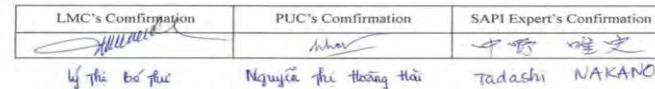 LMC's Comfirmation PUC's Comfirmation SAPI Expert's Confirmation
中野
Lý Thị Bé Thư Nguyễn Thị Hoàng Hải Tadashi NAKANO